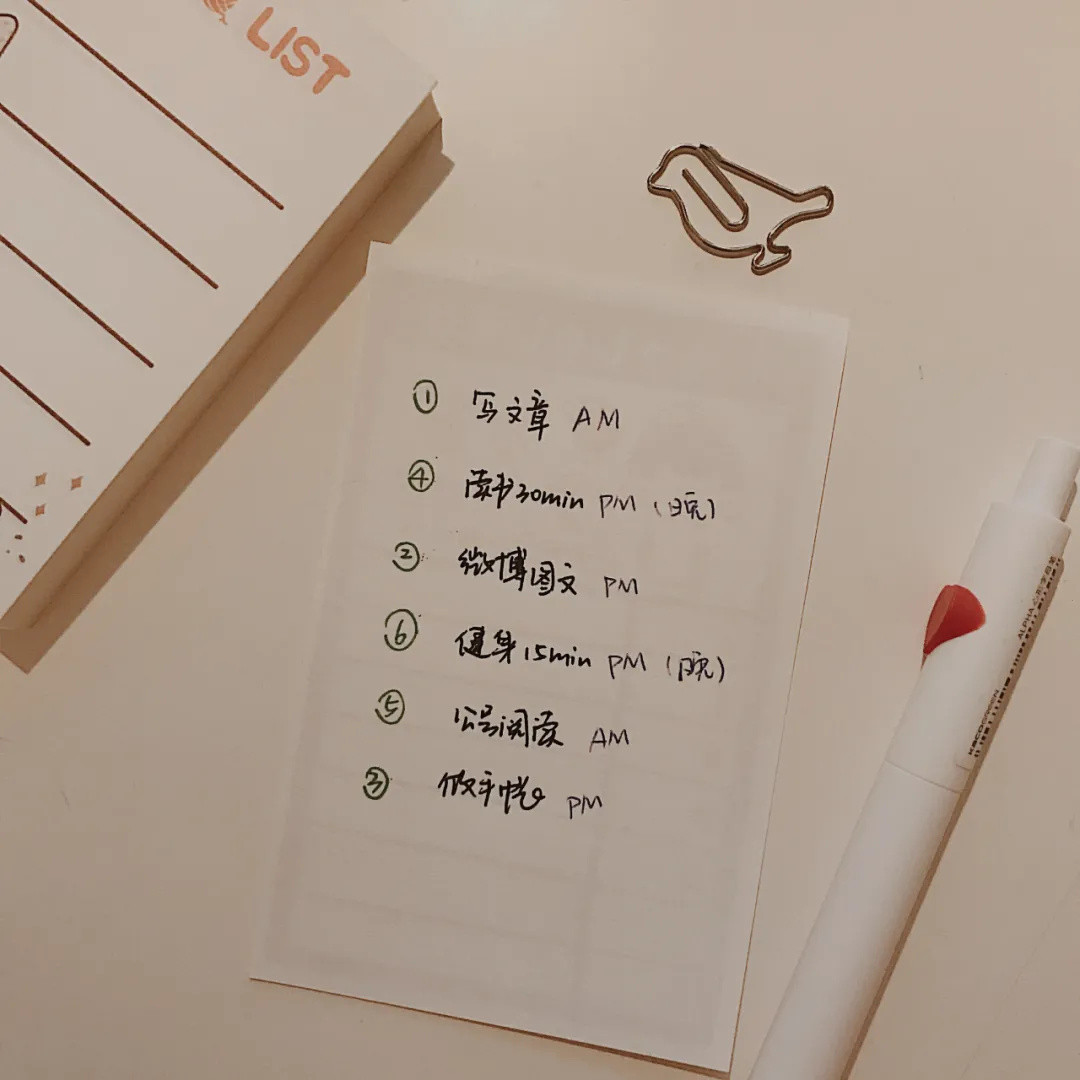 LIST
① 写文章 AM
④ 读书30min PM（晚）
② 微博图文 PM
⑥ 健身15min PM（晚）
⑤ 公号阅读 AM
③ 做手帐 PM
KACOGREEN
ALPHA